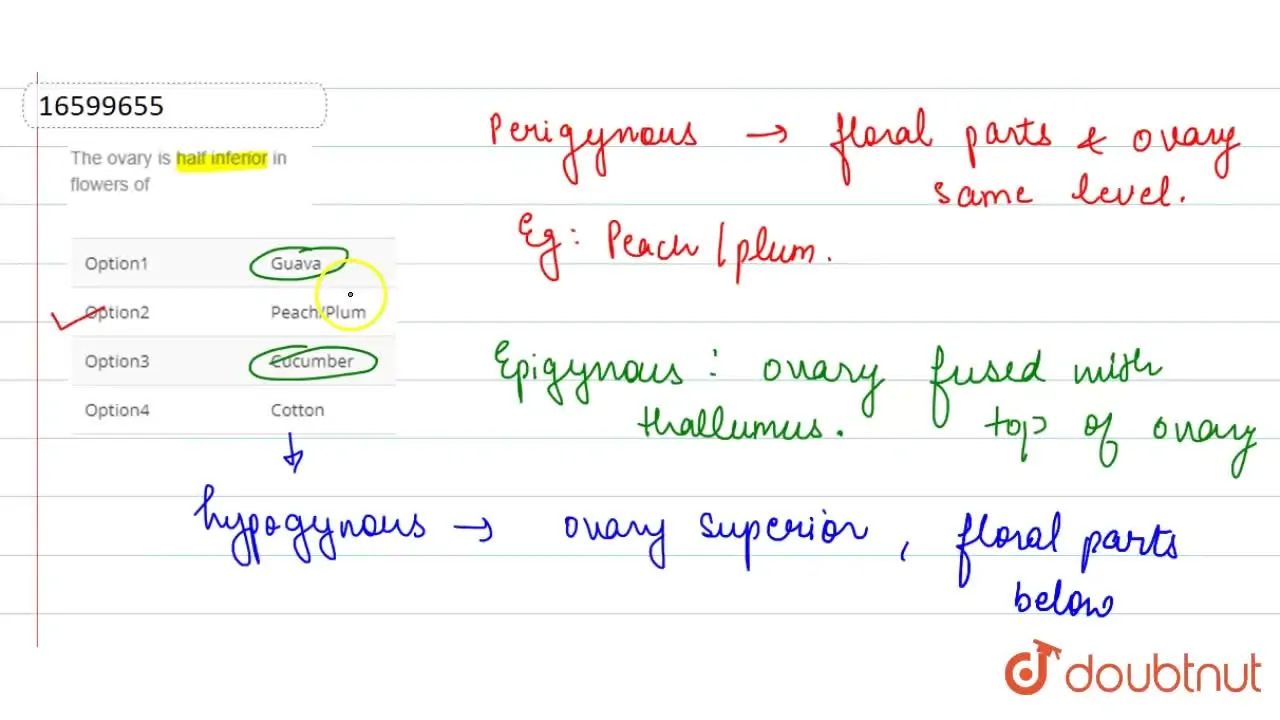 16599655
The ovary is half inferior in
flowers of
Option1 Guava
Option2 Peach/Plum
Option3 Cucumber
Option4 Cotton
Perigynous → floral parts & ovary
same level.
Eg: Peach/plum.
Epigynous: ovary fused with
thallumus. top of ovary
hypogynous → ovary superior, floral parts
below
doubtnut